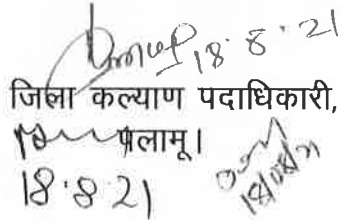 18.8.21
जिला कल्याण पदाधिकारी,
पलामू।
18.8.21
18/08/21